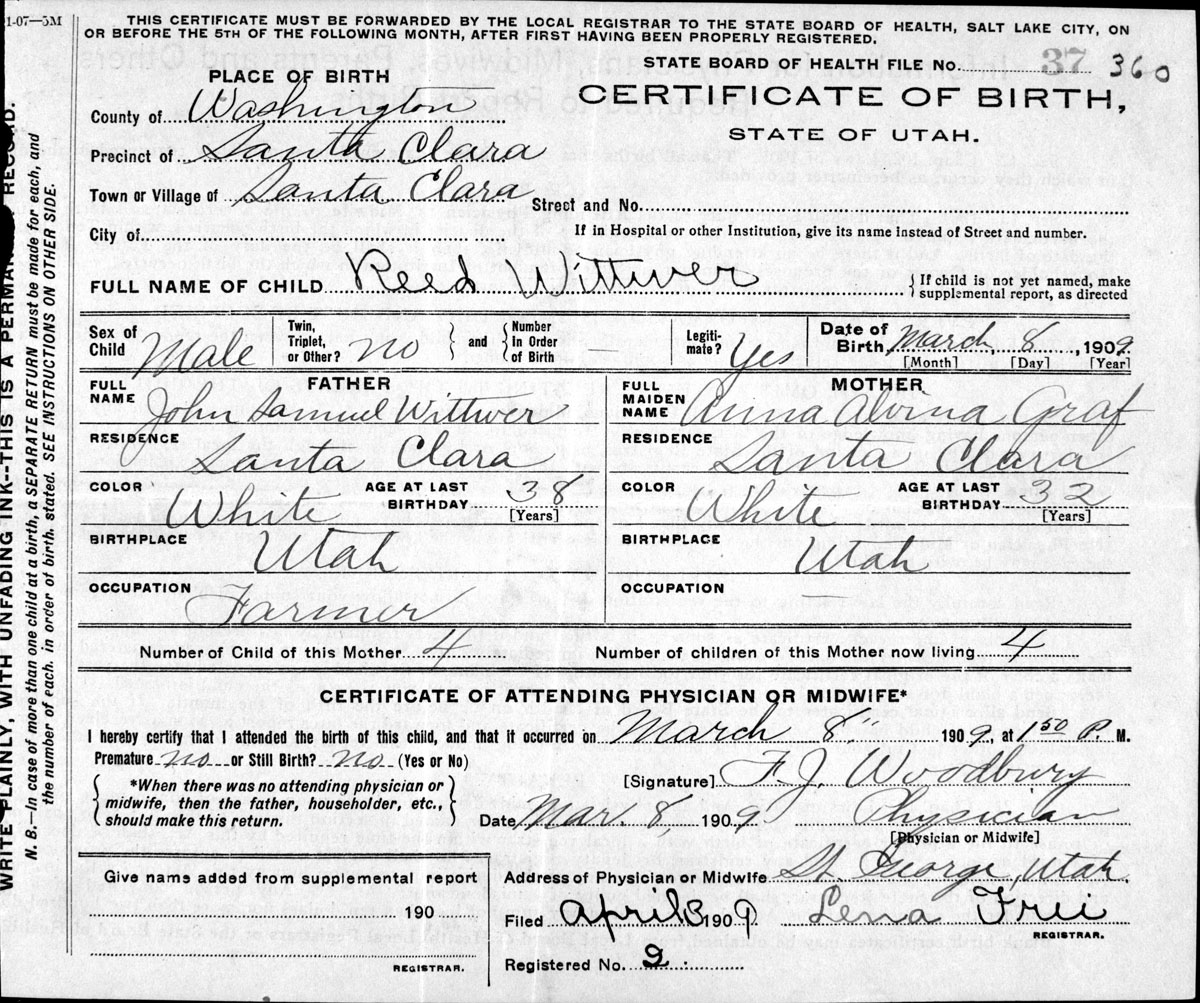 1-07—5M
THIS CERTIFICATE MUST BE FORWARDED BY THE LOCAL REGISTRAR TO THE STATE BOARD OF HEALTH, SALT LAKE CITY, ON
OR BEFORE THE 5TH OF THE FOLLOWING MONTH, AFTER FIRST HAVING BEEN PROPERLY REGISTERED.
STATE BOARD OF HEALTH FILE No. 37 360
PLACE OF BIRTH
CERTIFICATE OF BIRTH,
STATE OF UTAH.
County of Washington
Precinct of Santa Clara
Town or Village of Santa Clara
Street and No.
City of
If in Hospital or other Institution, give its name instead of Street and number.
FULL NAME OF CHILD Reed Wittwer
{ If child is not yet named, make
supplemental report, as directed
Sex of Child Male
Twin, Triplet, or Other? no
and
Number In Order of Birth
Legiti-mate? Yes
Date of Birth, March, 8, 1909.
[Month] [Day] [Year]
FATHER
FULL NAME John Samuel Wittwer
RESIDENCE Santa Clara
COLOR White
AGE AT LAST BIRTHDAY 38
[Years]
BIRTHPLACE Utah
OCCUPATION Farmer
MOTHER
FULL MAIDEN NAME Anna Alvina Graf
RESIDENCE Santa Clara
COLOR White
AGE AT LAST BIRTHDAY 32
[Years]
BIRTHPLACE Utah
OCCUPATION —
Number of Child of this Mother 4
Number of children of this Mother now living 4
CERTIFICATE OF ATTENDING PHYSICIAN OR MIDWIFE*
I hereby certify that I attended the birth of this child, and that it occurred on March 8, 1909, at 1 50 P. M.
Premature no or Still Birth? no (Yes or No)
{ *When there was no attending physician or
midwife, then the father, householder, etc.,
should make this return. }
[Signature] F. J. Woodbury
Date Mar. 8, 1909 Physician
[Physician or Midwife]
Address of Physician or Midwife St. George, Utah.
Filed April 3 1909 Lena Frei
REGISTRAR.
Registered No. 2.
Give name added from supplemental report
190
REGISTRAR.
WRITE PLAINLY, WITH UNFADING INK--THIS IS A PERMANENT RECORD.
N. B.—In case of more than one child at a birth, a SEPARATE RETURN must be made for each, and
the number of each, in order of birth, stated. SEE INSTRUCTIONS ON OTHER SIDE.